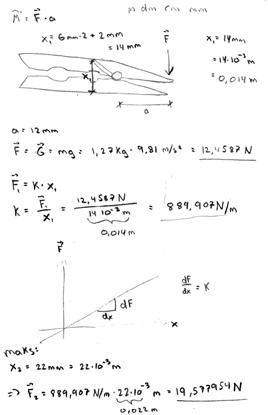 m dm cm mm
M⃗ = F⃗ · a
x₁ = 6mm·2 + 2mm
= 14mm
F⃗
x₁ = 14mm
= 14·10⁻³m
= 0,014m
x₁
a
a = 12mm
F⃗ = G⃗ = mg = 1,27kg · 9,81 m/s² = 12,4587N
F⃗₁ = K · x₁
K = F⃗₁/x₁ = 12,4587N / 14·10⁻³m = 889,907N/m
0,014m
F⃗
dF
dx
dF/dx = K
x
maks:
x₂ = 22mm = 22·10⁻³m
=> F⃗₂ = 889,907 N/m · 22·10⁻³m = 19,577954N
0,022m